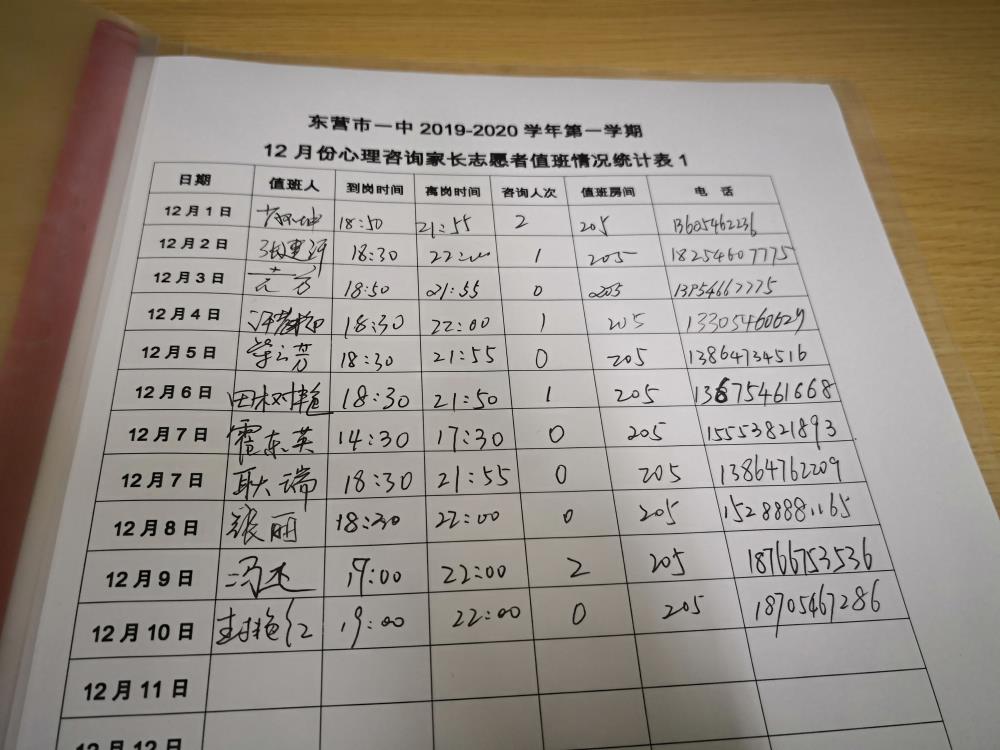 东营市一中 2019-2020 学年第一学期
12 月份心理咨询家长志愿者值班情况统计表 1
日期 值班人 到岗时间 离岗时间 咨询人次 值班房间 电 话
12 月 1 日 18:50 21:55 2 205 13605462236
12 月 2 日 18:30 22:00 1 205 18254607775
12 月 3 日 18:50 21:55 0 205 13954667775
12 月 4 日 18:30 22:00 1 205 13305460627
12 月 5 日 18:30 21:55 0 205 13864734516
12 月 6 日 田树艳 18:30 21:50 1 205 13675461668
12 月 7 日 霍东英 14:30 17:30 0 205 15553821893
12 月 7 日 耿端 18:30 21:55 0 205 13864762209
12 月 8 日 张丽 18:30 22:00 0 205 15288881165
12 月 9 日 19:00 22:00 2 205 18766753536
12 月 10 日 封艳红 19:00 22:00 0 205 18705467286
12 月 11 日
12 月 12 日